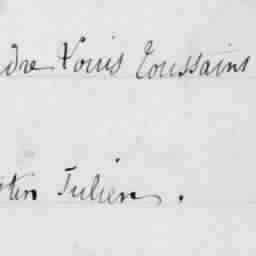 dre Louis Toussains
ten Julien.